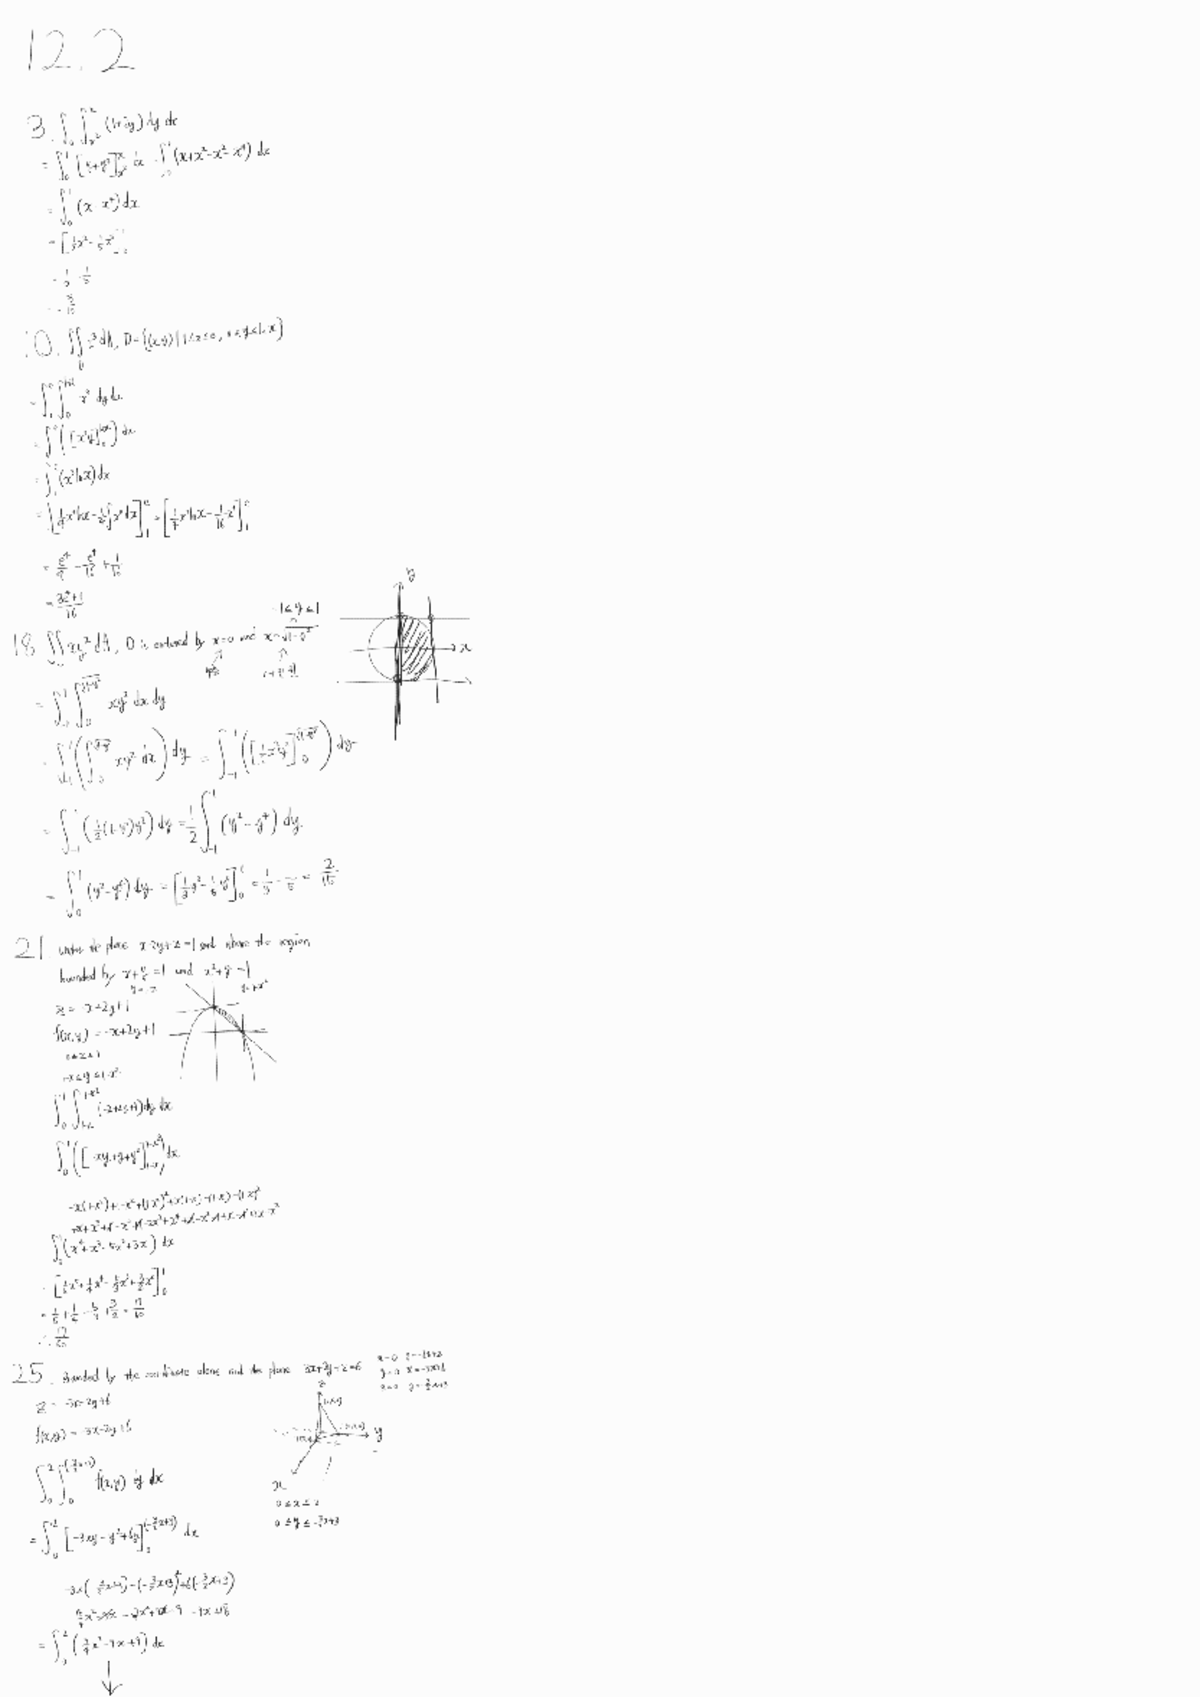 12.2
3. ∫₀¹∫ₓ²ˣ (1+2y) dy dx
= ∫₀¹ [y+y²]ₓ²ˣ dx = ∫₀¹ (x+x²-x²-x⁴) dx
= ∫₀¹ (x-x⁴) dx
= [½x²-⅕x⁵]₀¹
= ½-⅕
= 3/10
10. ∬_D x³ dA, D={(x,y)|1≤x≤e, 0≤y≤ln x}
= ∫₁ᵉ∫₀^(ln x) x³ dy dx
= ∫₁ᵉ ([x³y]₀^(ln x)) dx
= ∫₁ᵉ (x³ ln x) dx
= [¼x⁴ ln x - ¼∫x³dx]₁ᵉ = [¼x⁴ ln x - 1/16 x⁴]₁ᵉ
= e⁴/4 - e⁴/16 + 1/16
= (3e⁴+1)/16
-1≤y≤1
y
18 ∬ xy² dA, D is enclosed by x=0 and x=√(1-y²)
x
= ∫₋₁¹∫₀^√(1-y²) xy² dx dy
= ∫₋₁¹ (∫₀^√(1-y²) xy² dx) dy = ∫₋₁¹ ([½x²y²]₀^√(1-y²)) dy
= ∫₋₁¹ (½(1-y²)y²) dy = ½∫₋₁¹ (y²-y⁴) dy
= ∫₀¹ (y²-y⁴) dy = [⅓y³-⅕y⁵]₀¹ = ⅓-⅕ = 2/15
21. under the plane x-2y+z=1 and above the region
bounded by x+y=1 and x²+y=1
z = -x+2y+1
f(x,y) = -x+2y+1
0≤x≤1
1-x≤y≤1-x²
∫₀¹∫₁₋ₓ^(1-x²) (-x+2y+1) dy dx
∫₀¹ ([-xy+y+y²]₁₋ₓ^(1-x²)) dx
-x(1-x²)+1-x²+(1-x²)²+x(1-x)-(1-x)-(1-x)²
∫₀¹ (x⁴+x³-5x²+3x) dx
= [⅕x⁵+¼x⁴-5/3x³+3/2x²]₀¹
= ⅕+¼-5/3+3/2 = 17/60
∴ 17/60
25. Bounded by the coordinate planes and the plane 3x+2y+z=6
z = -3x-2y+6
f(x,y) = -3x-2y+6
z
y
x
∫₀²∫₀^(-3/2x+3) f(x,y) dy dx
0≤x≤2
0≤y≤-3/2x+3
= ∫₀² [-3xy-y²+6y]₀^(-3/2x+3) dx
-3x(-3/2x+3)-(-3/2x+3)²+6(-3/2x+3)
= ∫₀² (9/4x²-9x+9) dx
↓